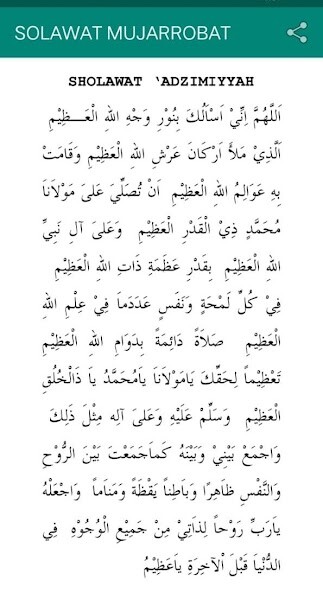 SOLAWAT MUJARROBAT
SHOLAWAT 'ADZIMIYYAH
اَللَّهُمَّ اِنِّيْ اَسْاَلُكَ بِنُوْرِ وَجْهِ اللهِ الْعَـــظِيْمِ
اَلَّذِيْ مَلَأَ اَرْكَانَ عَرْشِ اللهِ الْعَظِيْمِ وَقَامَتْ
بِهِ عَوَالِمُ اللهِ الْعَظِيْمِ اَنْ تُصَلِّيَ عَلىَ مَوْلاَناَ
مُحَمَّدٍ ذِيْ الْقَدْرِ الْعَظِيْمِ وَعَلىَ آلِ نَبِيِّ
اللهِ الْعَظِيْمِ بِقَدْرِ عَظَمَةِ ذَاتِ اللهِ الْعَظِيْمِ
فِيْ كُلِّ لَمْحَةٍ وَنَفَسٍ عَدَدَماَ فِيْ عِلْمِ اللهِ
الْعَظِيْمِ صَلاَةً دَائِمَةً بِدَوَامِ اللهِ الْعَظِيْمِ
تَعْظِيْماً لِحَقِّكَ ياَمَوْلاَناَ ياَمُحَمَّدُ ياَ ذَالْخُلُقِ
الْعَظِيْمِ وَسَلِّمْ عَلَيْهِ وَعَلىَ آلِهِ مِثْلَ ذَلِكَ
وَاجْمَعْ بَيْنِيْ وَبَيْنَهُ كَماَجَمَعْتَ بَيْنَ الرُّوْحِ
وَالنَّفْسِ ظاَهِرًا وَباَطِناً يَقْظَةً وَمَناَماً وَاجْعَلْهُ
ياَرَبِّ رَوْحاً لِذاَتِيْ مِنْ جَمِيْعِ الْوُجُوْهِ فِي
الدُّنْياَ قَبْلَ الْآخِرَةِ ياَعَظِيْمُ